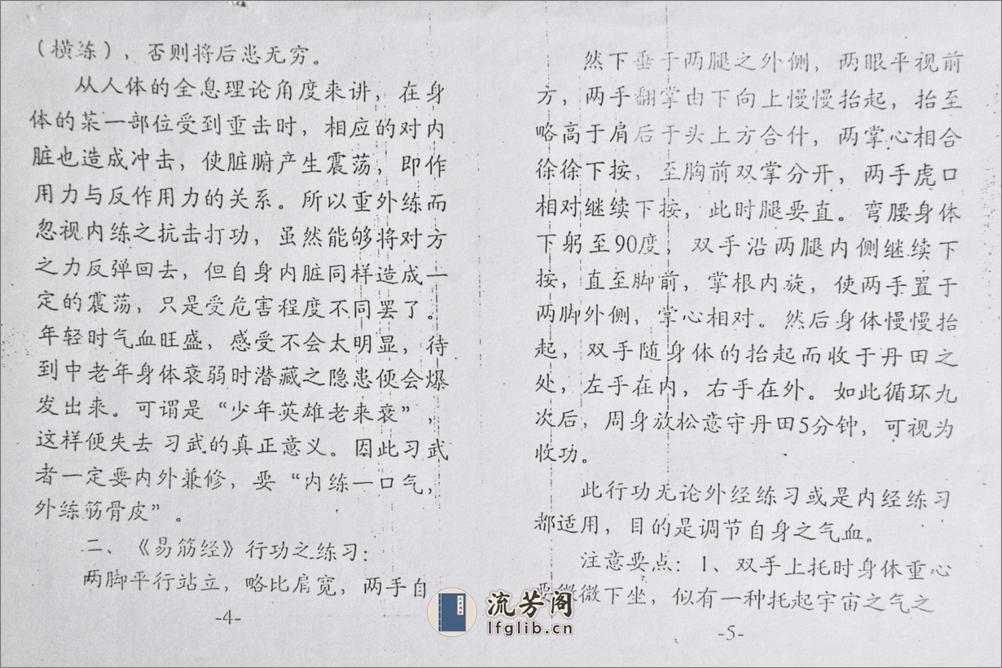 （横练），否则将后患无穷。
从人体的全息理论角度来讲，在身
体的某一部位受到重击时，相应的对内
脏也造成冲击，使脏腑产生震荡，即作
用力与反作用力的关系。所以重外练而
忽视内练之抗击打功，虽然能够将对方
之力反弹回去，但自身内脏同样造成一
定的震荡，只是受危害程度不同罢了。
年轻时气血旺盛，感受不会太明显，待
到中老年身体衰弱时潜藏之隐患便会爆
发出来。可谓是“少年英雄老来衰”，
这样便失去习武的真正意义。因此习武
者一定要内外兼修，要“内练一口气，
外练筋骨皮”。
二、《易筋经》行功之练习：
两脚平行站立，略比肩宽，两手自
-4-
然下垂于两腿之外侧，两眼平视前
方，两手翻掌由下向上慢慢抬起，抬至
略高于肩后于头上方合什，两掌心相合
徐徐下按，至胸前双掌分开，两手虎口
相对继续下按，此时腿要直。弯腰身体
下躬至90度，双手沿两腿内侧继续下
按，直至脚前，掌根内旋，使两手置于
两脚外侧，掌心相对。然后身体慢慢抬
起，双手随身体的抬起而收于丹田之
处，左手在内，右手在外。如此循环九
次后，周身放松意守丹田5分钟，可视为
收功。
此行功无论外经练习或是内经练习
都适用，目的是调节自身之气血。
注意要点：1、双手上托时身体重心
要微微下坐，似有一种托起宇宙之气之
-5-
流芳阁
lfglib.cn